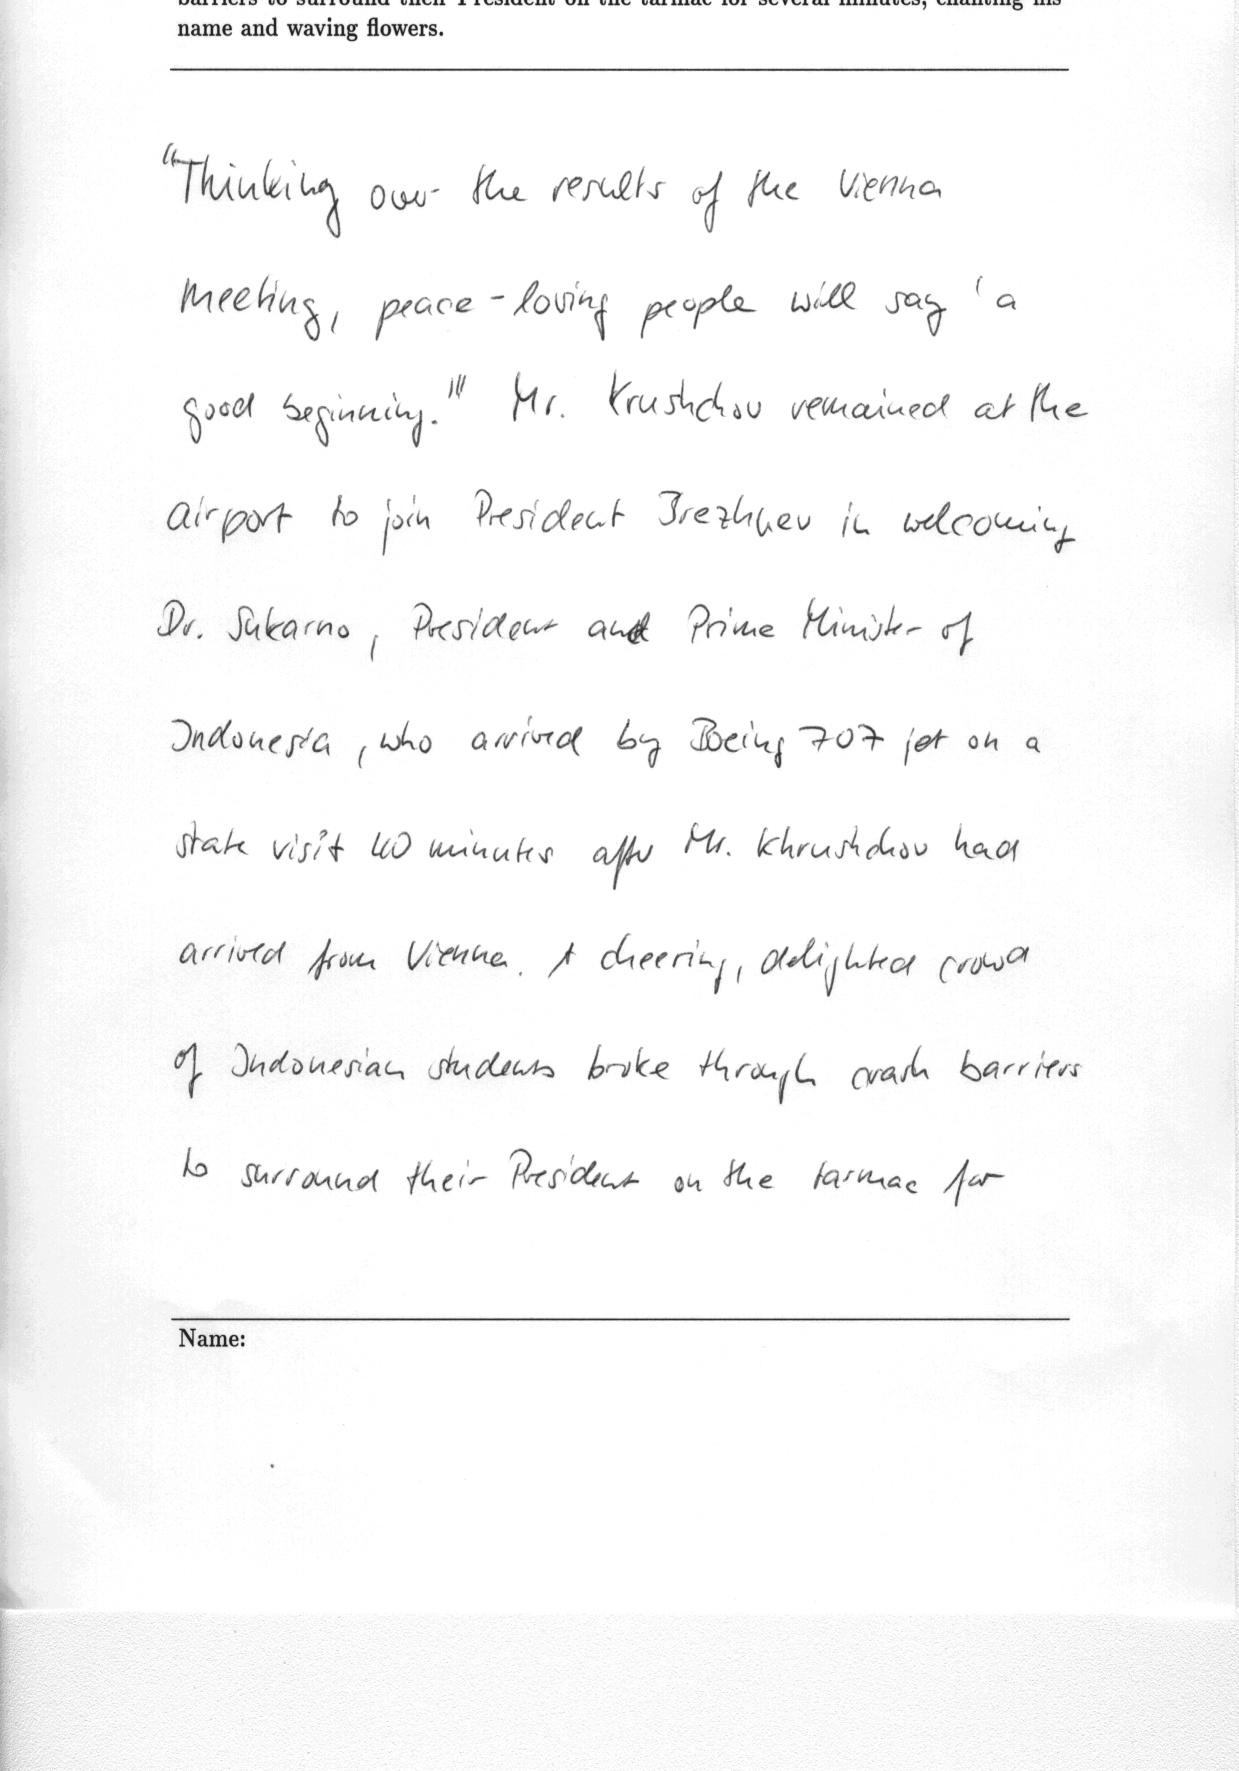 barriers to surround their President on the tarmac for several minutes, chanting his
name and waving flowers.
"Thinking over the results of the Vienna
meeting, peace-loving people will say 'a
good beginning.'" Mr. Krushchov remained at the
airport to join President Brezhnev in welcoming
Dr. Sukarno, President and Prime Minister of
Indonesia, who arrived by Boeing 707 jet on a
state visit 40 minutes after Mr. Khrushchov had
arrived from Vienna. A cheering, delighted crowd
of Indonesian students broke through crash barriers
to surround their President on the tarmac for
Name: